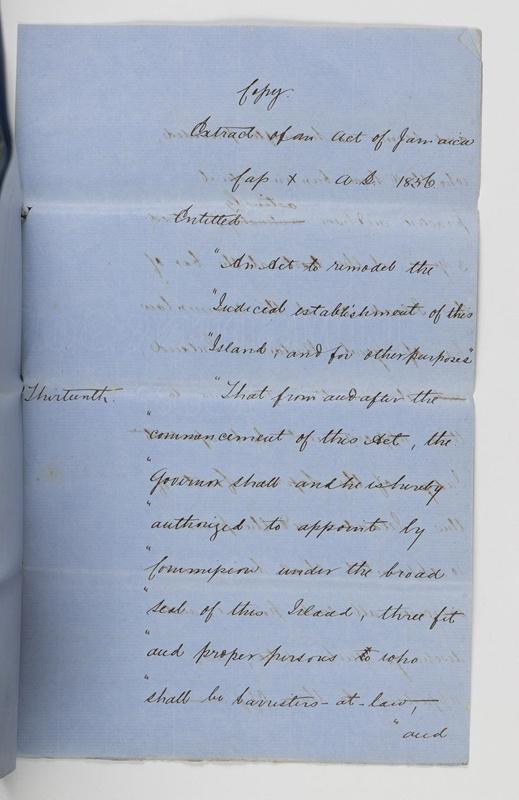 Copy.
Extract of an Act of Jamaica
Cap X A D. 1856
Entitled
"An Act to remodel the
"Judicial establishment of this
"Island, and for other purposes"
Thirteenth. "That from and after the
"commencement of this Act, the
"Governor shall and he is hereby
"authorized to appoint by
"Commission under the broad
"seal of this Island, three fit
"and proper persons to who
"shall be barristers-at-law,
"and